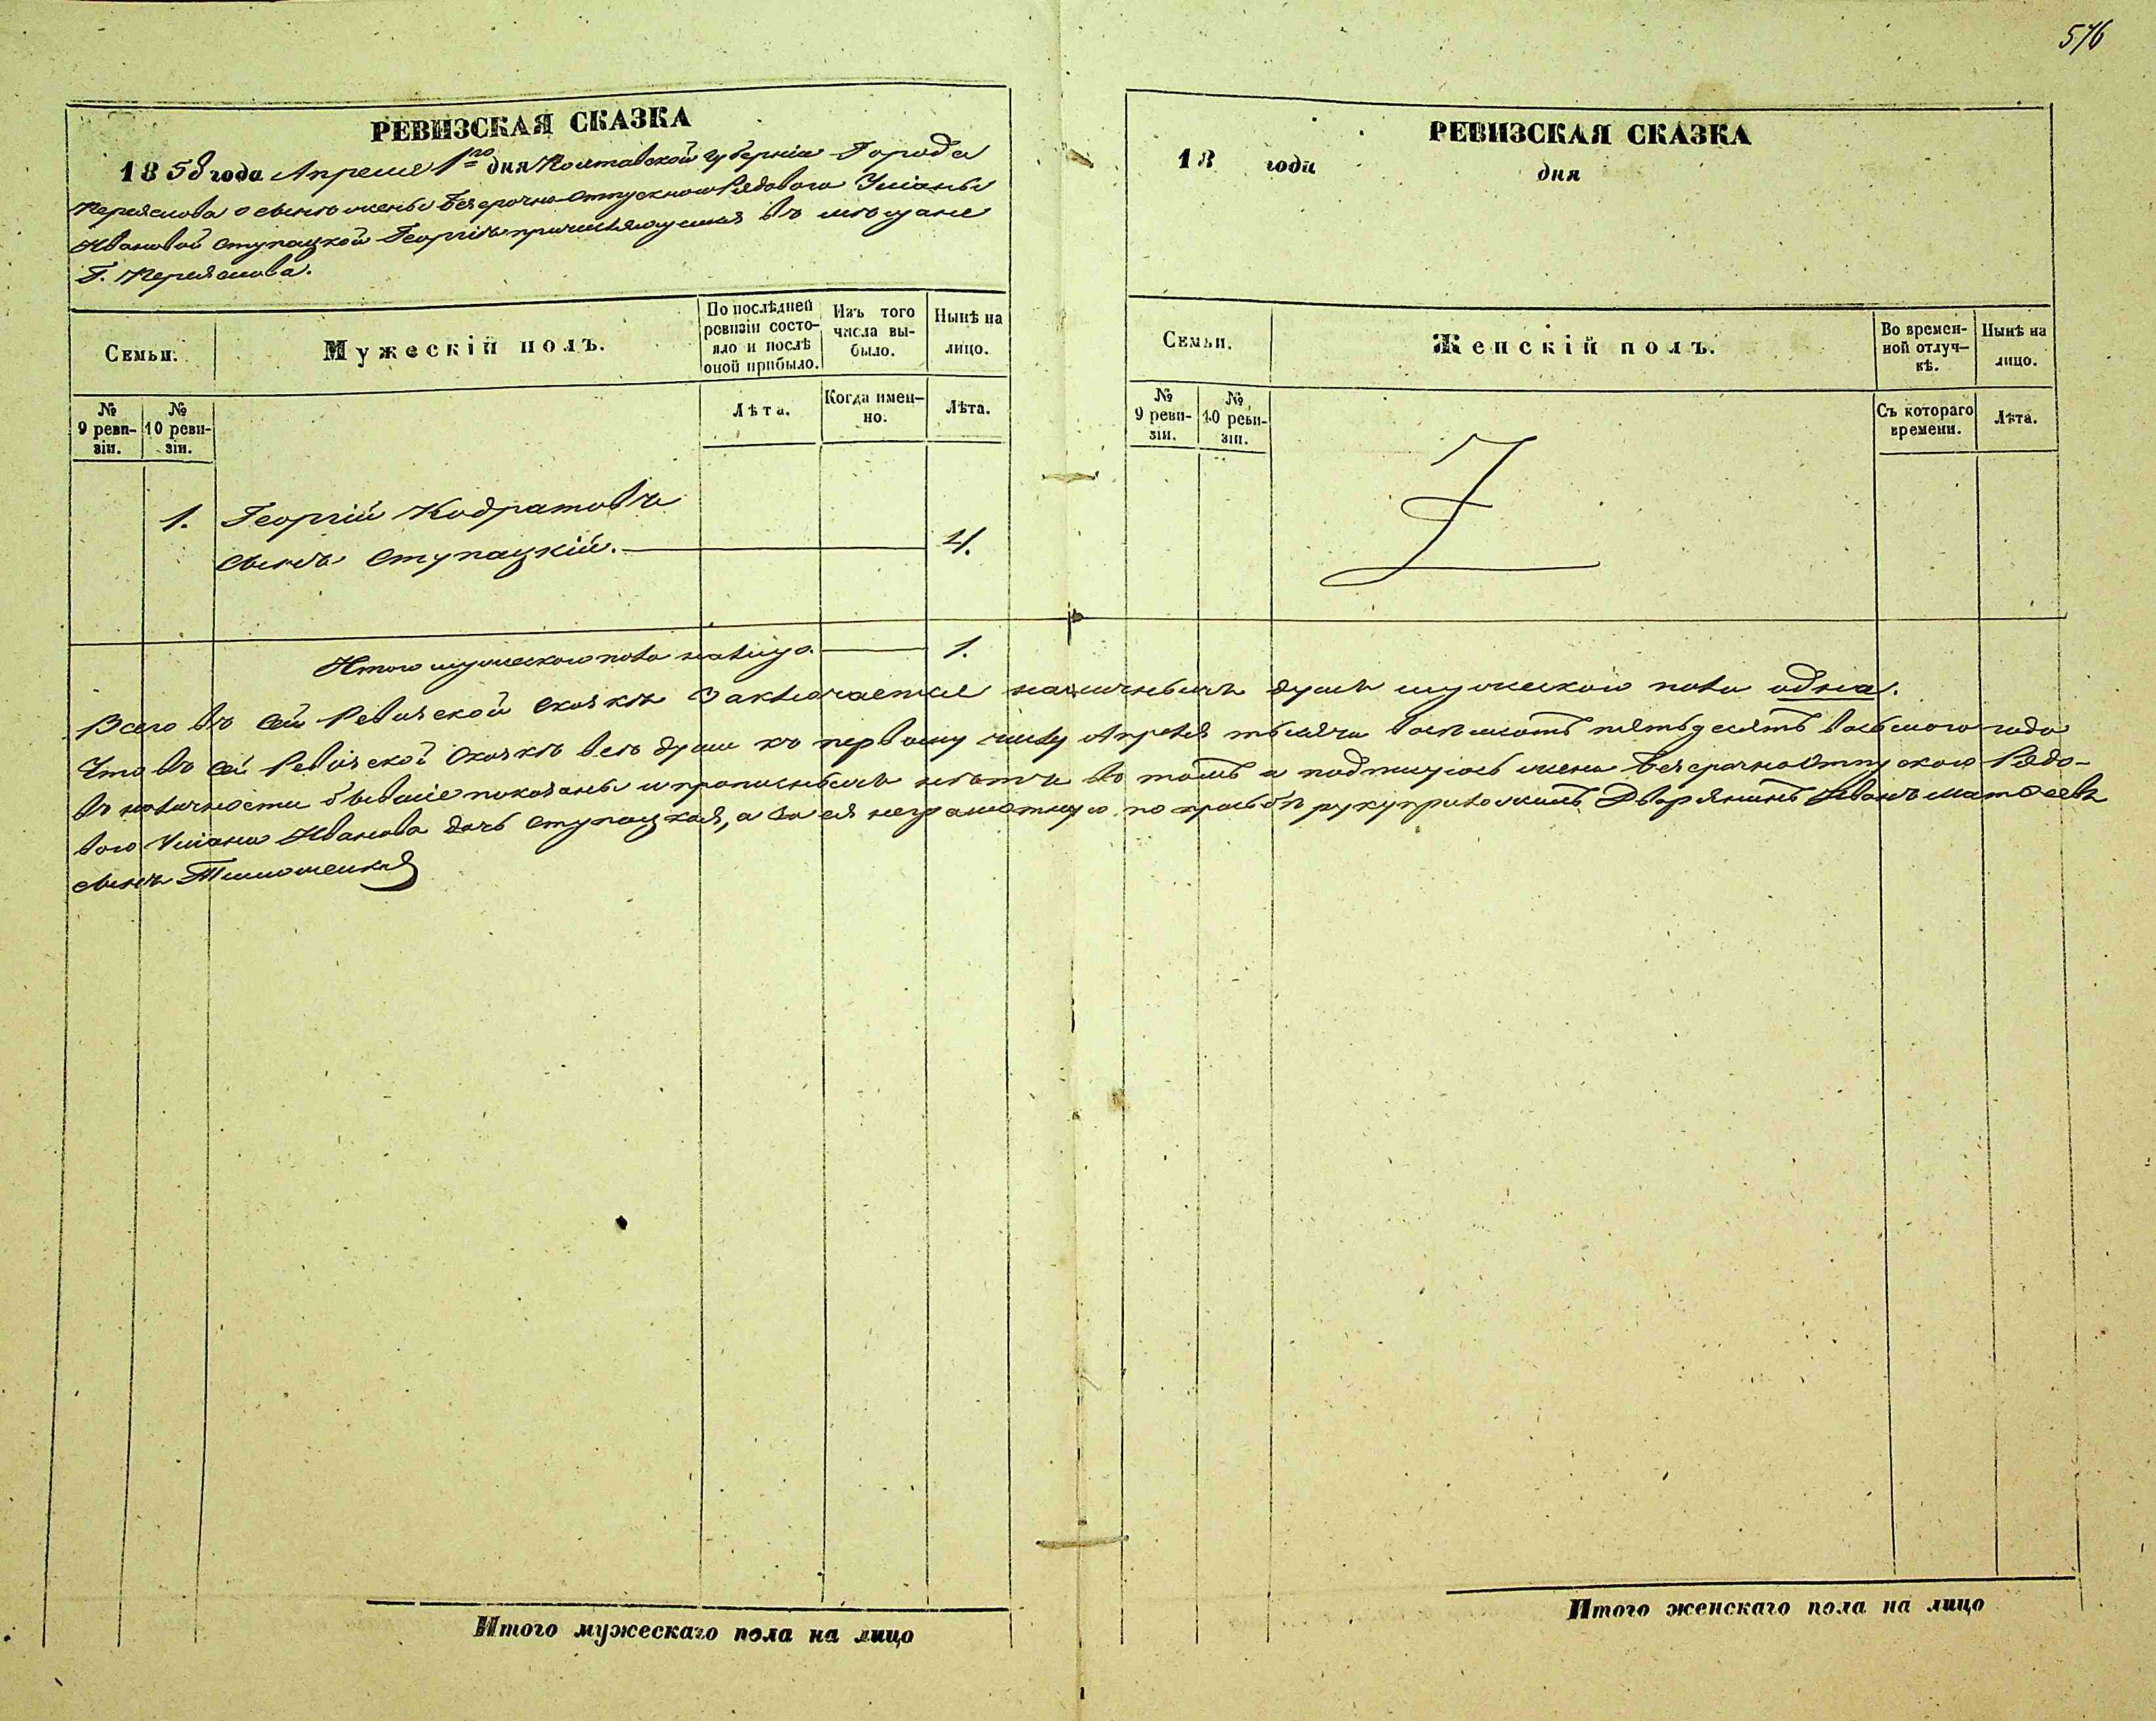 576
РЕВИЗСКАЯ СКАЗКА
1858 года Апреля 1го дня Полтавской губерніи Города
Переяслова о сынѣ жены безсрочно-отпускного Рядового Уліаны
Ивановой Ступацкой Георгіѣ причисляющемся въ мѣщане
Г. Переяслова.
Семьи.
Мужескій полъ.
По послѣдней ревизіи состояло и послѣ оной прибыло.
Изъ того числа выбыло.
Нынѣ на лицо.
№ 9 ревизіи.
№ 10 ревизіи.
Лѣта.
Когда именно.
Лѣта.
1. Георгій Кодратовъ
сынъ Ступацкій. 4.
Итого мужеского пола налицо 1.
РЕВИЗСКАЯ СКАЗКА
18 года дня
Семьи.
Женскій полъ.
Во временной отлучкѣ.
Нынѣ на лицо.
№ 9 ревизіи.
№ 10 ревизіи.
Съ котораго времени.
Лѣта.
Всего въ сей Ревизской сказкѣ заключается наличныхъ душъ мужеского пола одна.
Что въ сей Ревизской Сказкѣ всѣ души къ первому числу Апреля тысяча восемьсотъ пятьдесятъ восьмого года
въ наличности бывшіе показаны и прописныхъ нѣтъ въ томъ и подписуюсь жена безсрочноотпускного Рядо-
вого Уліана Иванова дочь Ступацкая, а за ея неграмотную по прозьбѣ руку приложилъ Дворянинъ Иванъ Матвеевъ
сынъ
Итого мужескаго пола на лицо
Итого женскаго пола на лицо